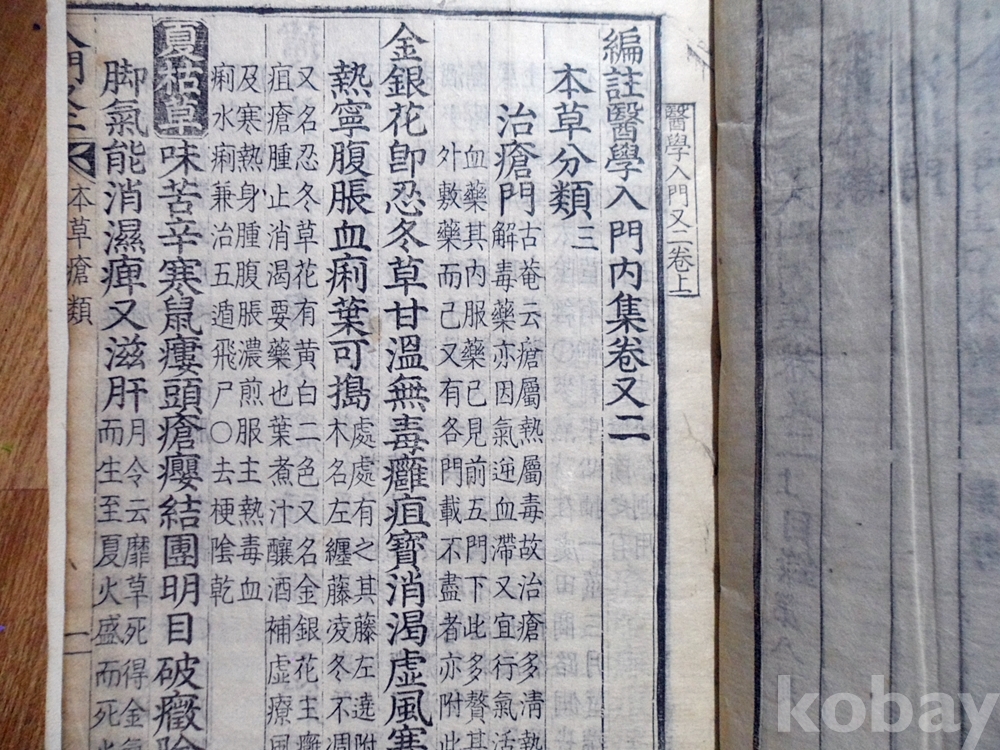 醫學入門又二卷上
編註醫學入門内集卷又二
本草分類三
治瘡門
古菴云瘡屬熱屬毒故治瘡多淸熱
解毒藥亦因氣逆血滯又宜行氣活
血藥其内服藥已見前五門下此多贅其
外敷藥而已又有各門載不盡者亦附此
金銀花卽忍冬草甘溫無毒癰疽寶消渴虛風寒
熱寧腹脹血痢葉可搗
處處有之其藤左遶附
木名左纏藤凌冬不凋
又名忍冬草花有黄白二色又名金銀花主癰
疽瘡腫止消渴要藥也葉煮汁釀酒補虛療風
及寒熱身腫腹脹濃煎服主熱毒血
痢水痢兼治五遁飛尸○去梗陰乾
夏枯草味苦辛寒鼠瘻頭瘡癭結團明目破癥
脚氣能消濕痺又滋肝
月令云靡草死得金氣
而生至夏火盛而死
本草瘡類
一
kobay